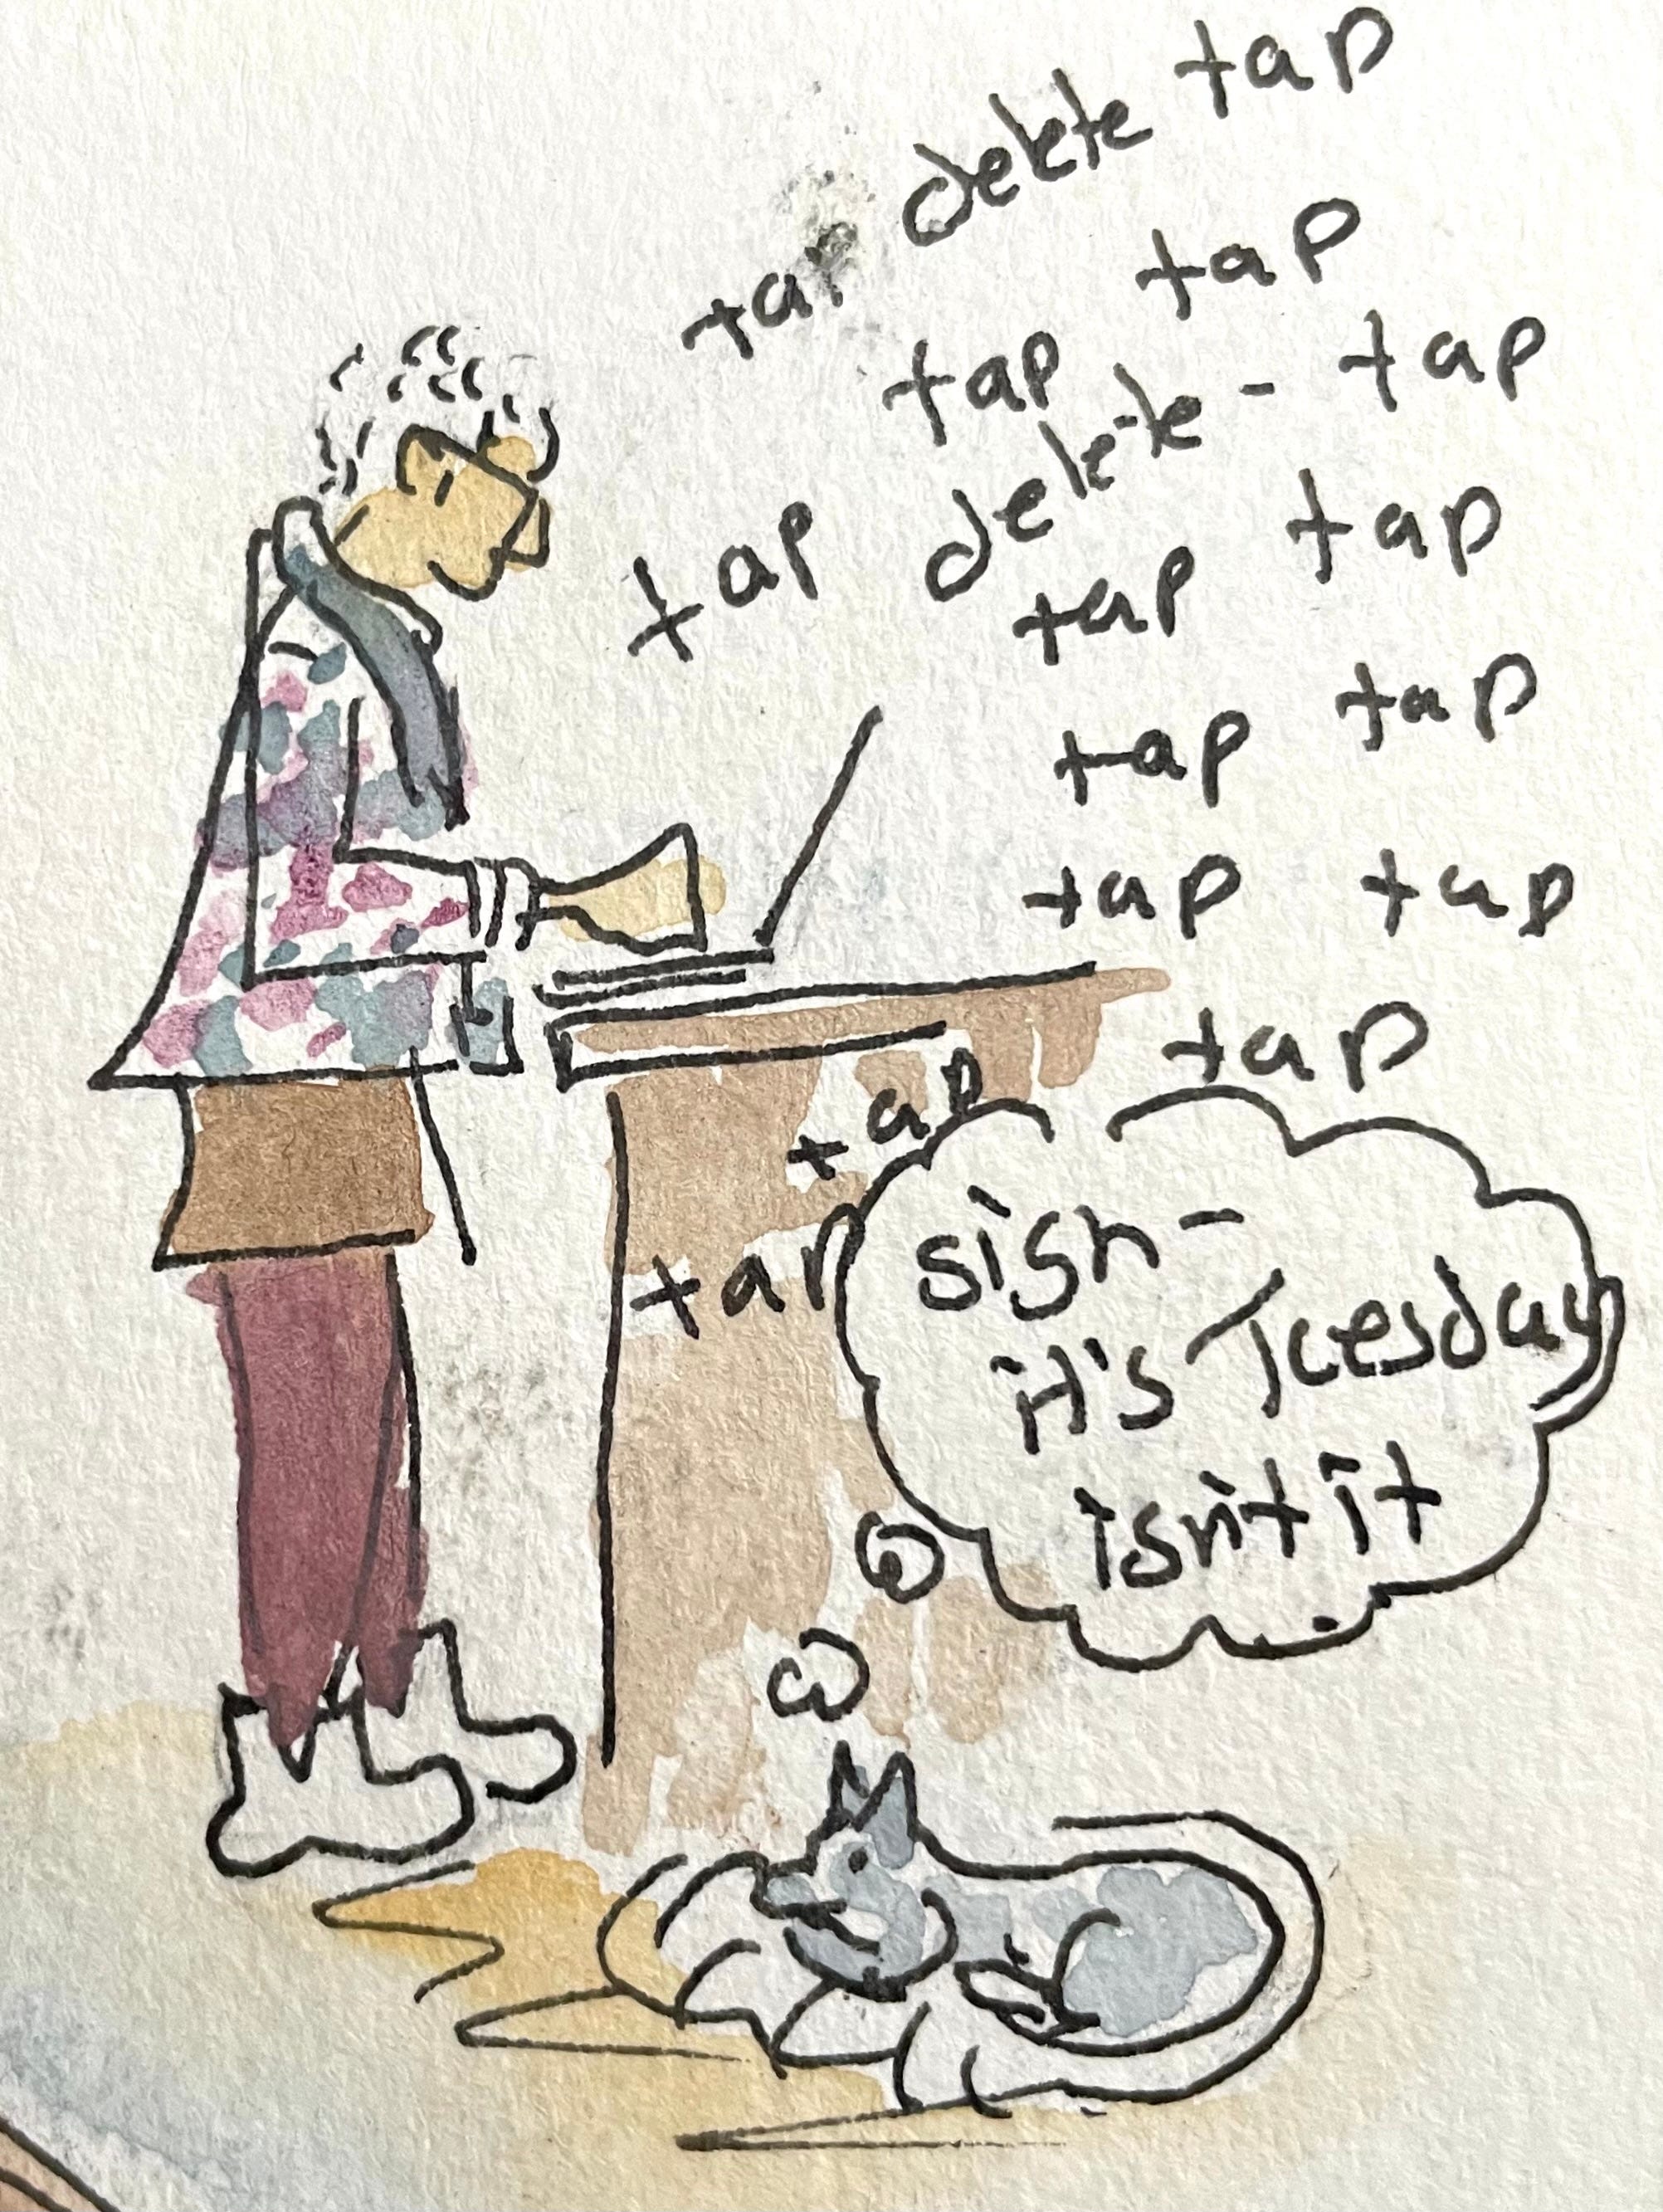 tap delete tap
tap tap
tap delete - tap
tap tap
tap tap
tap tap
tap
tap
tap
sigh -
it's Tuesday
isn't it